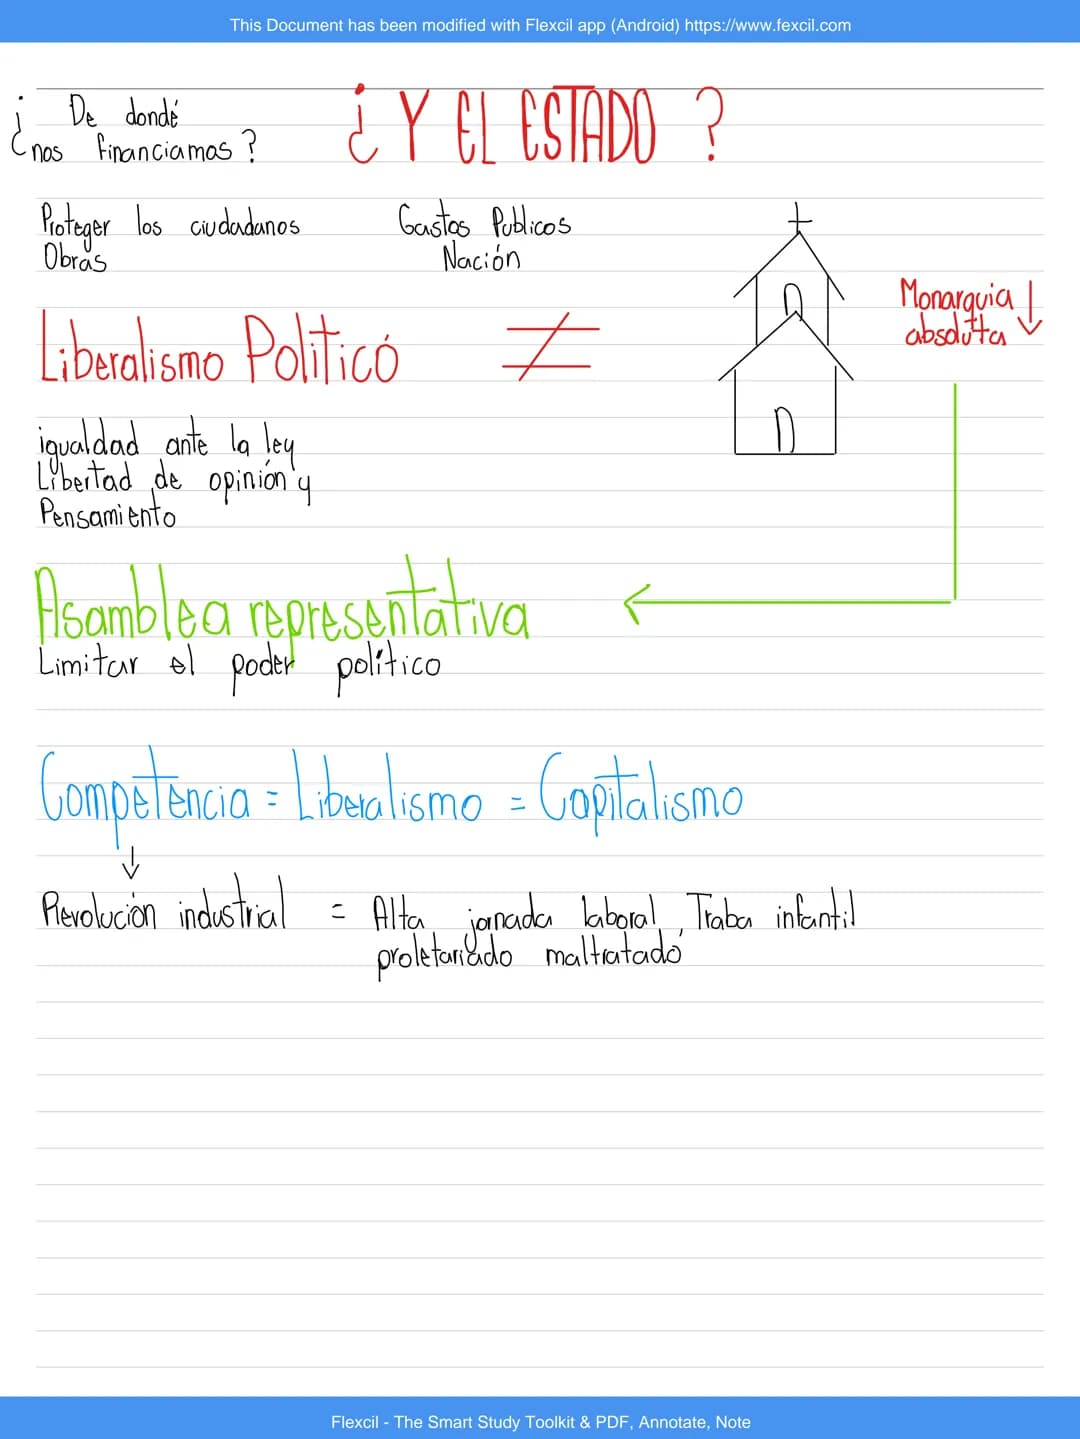 This Document has been modified with Flexcil app (Android) https://www.fexcil.com
¿ De dondé
nos financiamos?
¿Y EL ESTADO?
Proteger los ciudadanos
Obras
Gastos Publicos
Nación
Monarquia
absoluta
Liberalismo Politicó ≠
igualdad ante la ley
Libertad de opinión y
Pensamiento
Asamblea representativa
Limitar el poder político
Competencia = Liberalismo = Capitalismo
Revolución industrial = Alta jornada laboral, Traba infantil
proletariado maltratado
Flexcil - The Smart Study Toolkit & PDF, Annotate, Note